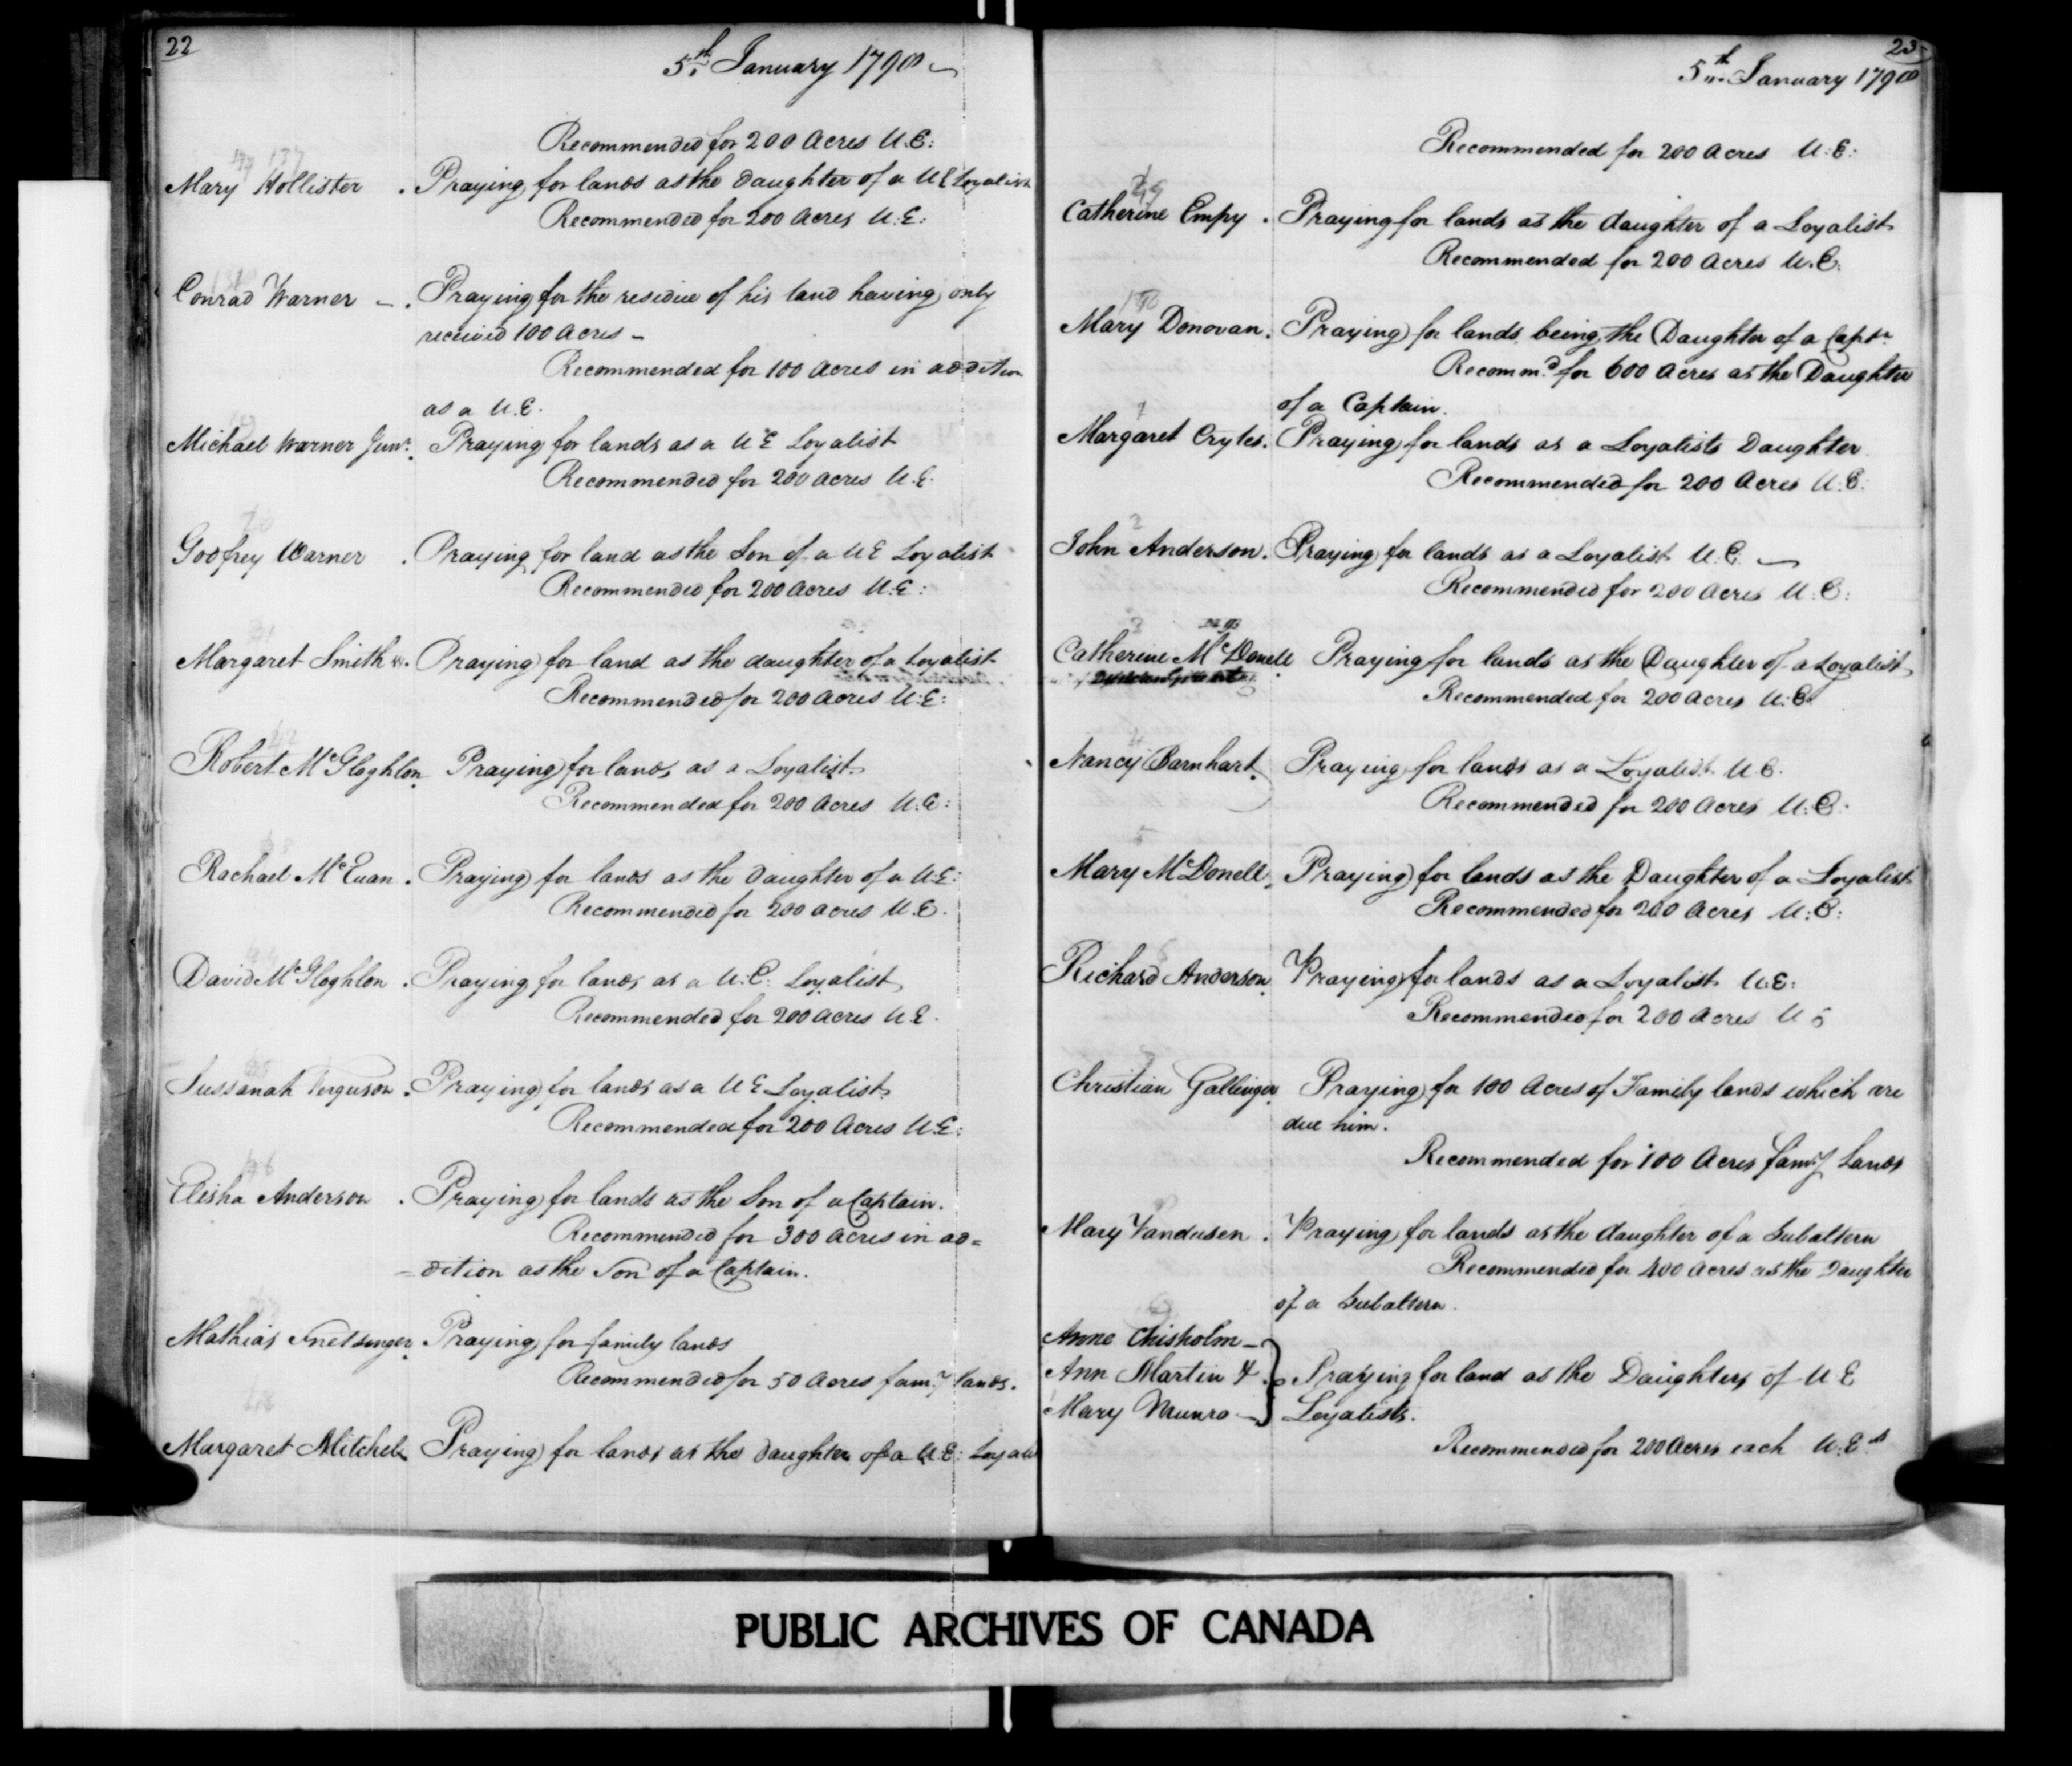 22
5th January 1798
Recommended for 200 Acres U.E:
137
Mary Hollister . Praying for lands as the Daughter of a U E Loyalist
Recommended for 200 Acres U.E:
Conrad Warner - . Praying for the residue of his land having only
received 100 Acres -
Recommended for 100 Acres in addition
as a U.E.
Michael Warner Junr. Praying for lands as a U E Loyalist
Recommended for 200 Acres U.E.
Godfrey Warner . Praying for land as the Son of a U E Loyalist
Recommended for 200 Acres U.E:
Margaret Smith . Praying for land as the daughter of a Loyalist
Recommended for 200 Acres U.E:
Robert McGloghlon . Praying for lands as a Loyalist
Recommended for 200 Acres U.E:
Rachael McEuan . Praying for lands as the Daughter of a U.E:
Recommended for 200 Acres U.E.
David McGloghlon . Praying for lands as a U.E: Loyalist
Recommended for 200 Acres U E.
Sussanah Ferguson . Praying for lands as a U E Loyalist
Recommended for 200 Acres U.E:
Elisha Anderson . Praying for lands as the Son of a Captain.
Recommended for 300 Acres in ad=
-dition as the Son of a Captain.
Mathias Snetsinger . Praying for family lands
Recommended for 50 Acres famy lands.
Margaret Mitchel Praying for lands as the Daughter of a U.E: Loyalist
23
5th January 1798
Recommended for 200 Acres U:E:
Catherine Empy . Praying for lands as the daughter of a Loyalist
Recommended for 200 Acres U.E.
Mary Donovan . Praying for lands being the Daughter of a Captn
Recommd for 600 Acres as the Daughter
of a Captain.
Margaret Cryles . Praying for lands as a Loyalists Daughter
Recommended for 200 Acres U.E:
2
John Anderson . Praying for lands as a Loyalist U.E. -
Recommended for 200 Acres U:E:
3
Catherine McDonell . Praying for lands as the Daughter of a Loyalist
Recommended for 200 Acres U.E.
4
Nancy Barnhart . Praying for lands as a Loyalist U.E.
Recommended for 200 Acres U:E:
5
Mary McDonell . Praying for lands as the Daughter of a Loyalist
Recommended for 200 Acres U:E:
Richard Anderson . Praying for lands as a Loyalist U.E:
Recommended for 200 Acres U E
Christian Gallinger . Praying for 100 Acres of Family lands which are
due him.
Recommended for 100 Acres famy Lands
Mary Vandusen . Praying for lands as the daughter of a Subaltern
Recommended for 400 Acres as the Daughter
of a Subaltern.
Anne Chisholm -
Ann Martin & . Praying for land as the Daughters of U E
Mary Munro - Loyalists.
Recommended for 200 Acres each U.E.s
PUBLIC ARCHIVES OF CANADA